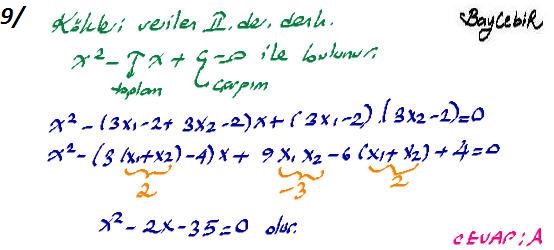 9/ Kökleri verilen II. der. denk. BayCebiR
x² - Tx + Ç = 0 ile bulunur.
toplam çarpım
x² - (3x₁-2 + 3x₂-2)x + (3x₁-2).(3x₂-2)=0
x² - (3(x₁+x₂)-4)x + 9x₁x₂ - 6(x₁+x₂) + 4 = 0
2 -3 2
x² - 2x - 35 = 0 olur.
CEVAP: A